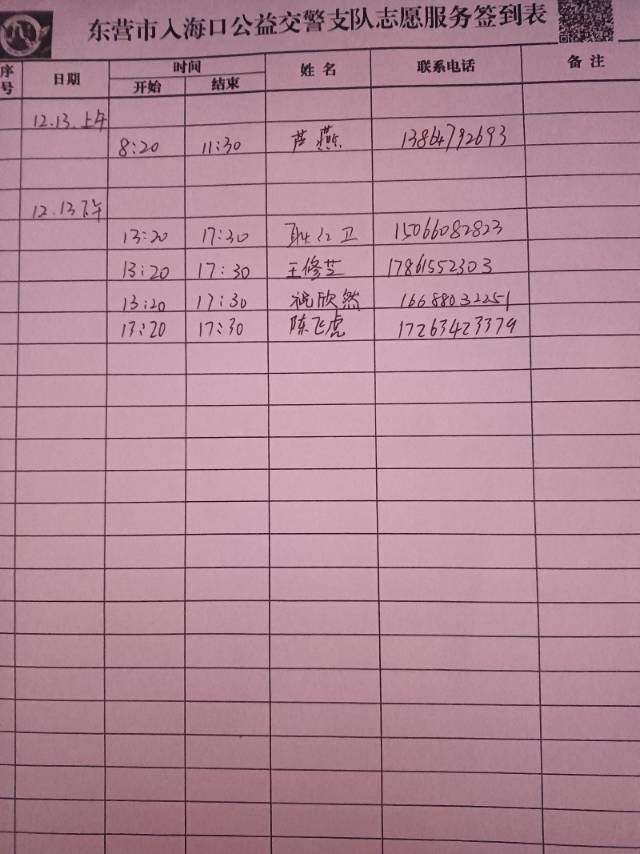 东营市入海口公益交警支队志愿服务签到表
序号 日期 时间 开始 结束 姓名 联系电话 备注
12.13.上午
8:20 11:30 芦燕 13864792693
12.13下午
13:20 17:30 耿红卫 15066082823
13:20 17:30 王修芝 17861552303
13:20 17:30 祝欣然 16688032251
13:20 17:30 陈飞虎 17263423379